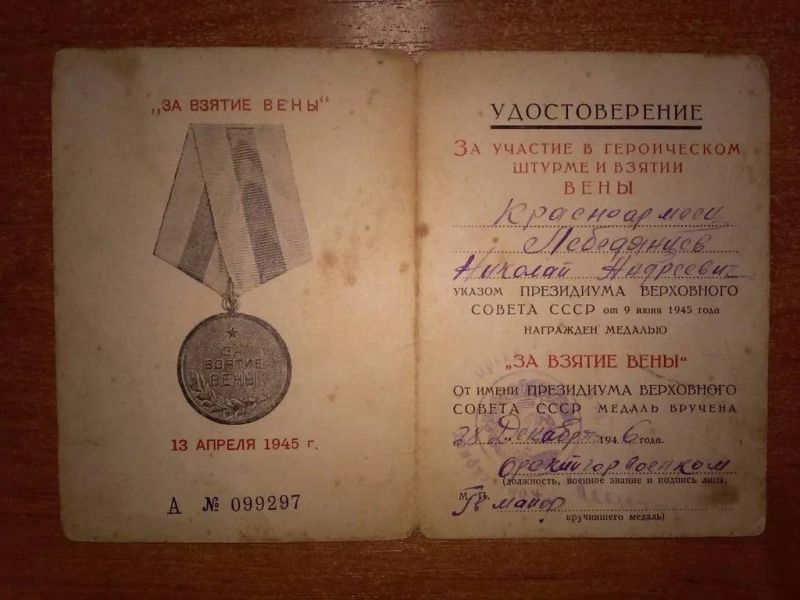 „ЗА ВЗЯТИЕ ВЕНЫ“
ЗА
ВЗЯТИЕ
ВЕНЫ
13 АПРЕЛЯ 1945 г.
А № 099297
УДОСТОВЕРЕНИЕ
ЗА УЧАСТИЕ В ГЕРОИЧЕСКОМ
ШТУРМЕ И ВЗЯТИИ
ВЕНЫ
Красноармеец
Лебедянцев
Николай Андреевич
УКАЗОМ ПРЕЗИДИУМА ВЕРХОВНОГО
СОВЕТА СССР от 9 июня 1945 года
НАГРАЖДЕН МЕДАЛЬЮ
„ЗА ВЗЯТИЕ ВЕНЫ“
От имени ПРЕЗИДИУМА ВЕРХОВНОГО
СОВЕТА СССР МЕДАЛЬ ВРУЧЕНА
„28“ Декабря 1946 года.
Орский горвоенком
(должность, военное звание и подпись лица,
М. П. майор
вручившего медаль)